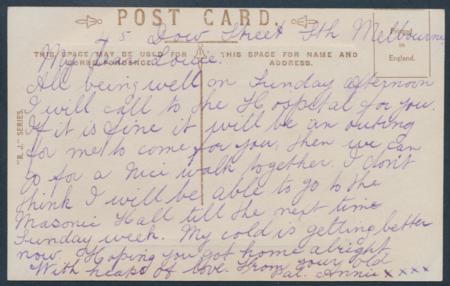 POST CARD.
75 Dow Street Sth Melbourne
THIS SPACE MAY BE USED FOR CORRESPONDENCE.
THIS SPACE FOR NAME AND ADDRESS.
Printed in England.
"R.J." SERIES.
My Louie.
All being well on Sunday afternoon
I will call to the Hospital for you.
If it is fine it will be an outing
for me to come for you, then we can
go for a nice walk together. I don't
think I will be able to go to the
Masonic Hall till the next time
Sunday week. My cold is getting better
now. Hoping you got home alright
With heaps of love from your old
Pal. Annie xxxx